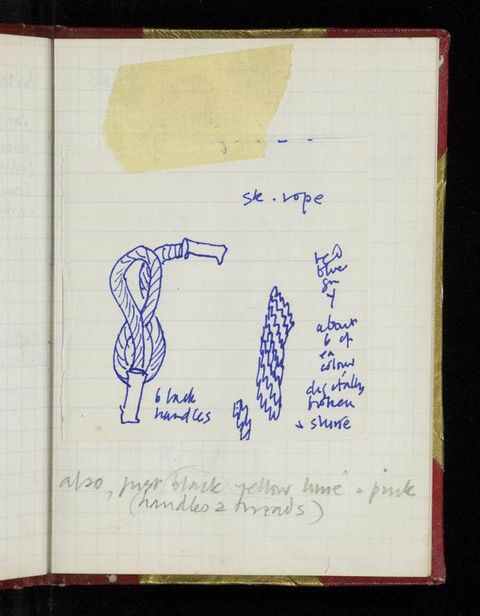 sk. rope
red
blue
gn
Y
about
6 of
ea
colour
digitally
broken
& shine
black
handles
also, just black yellow lime & pink
(handles & threads)